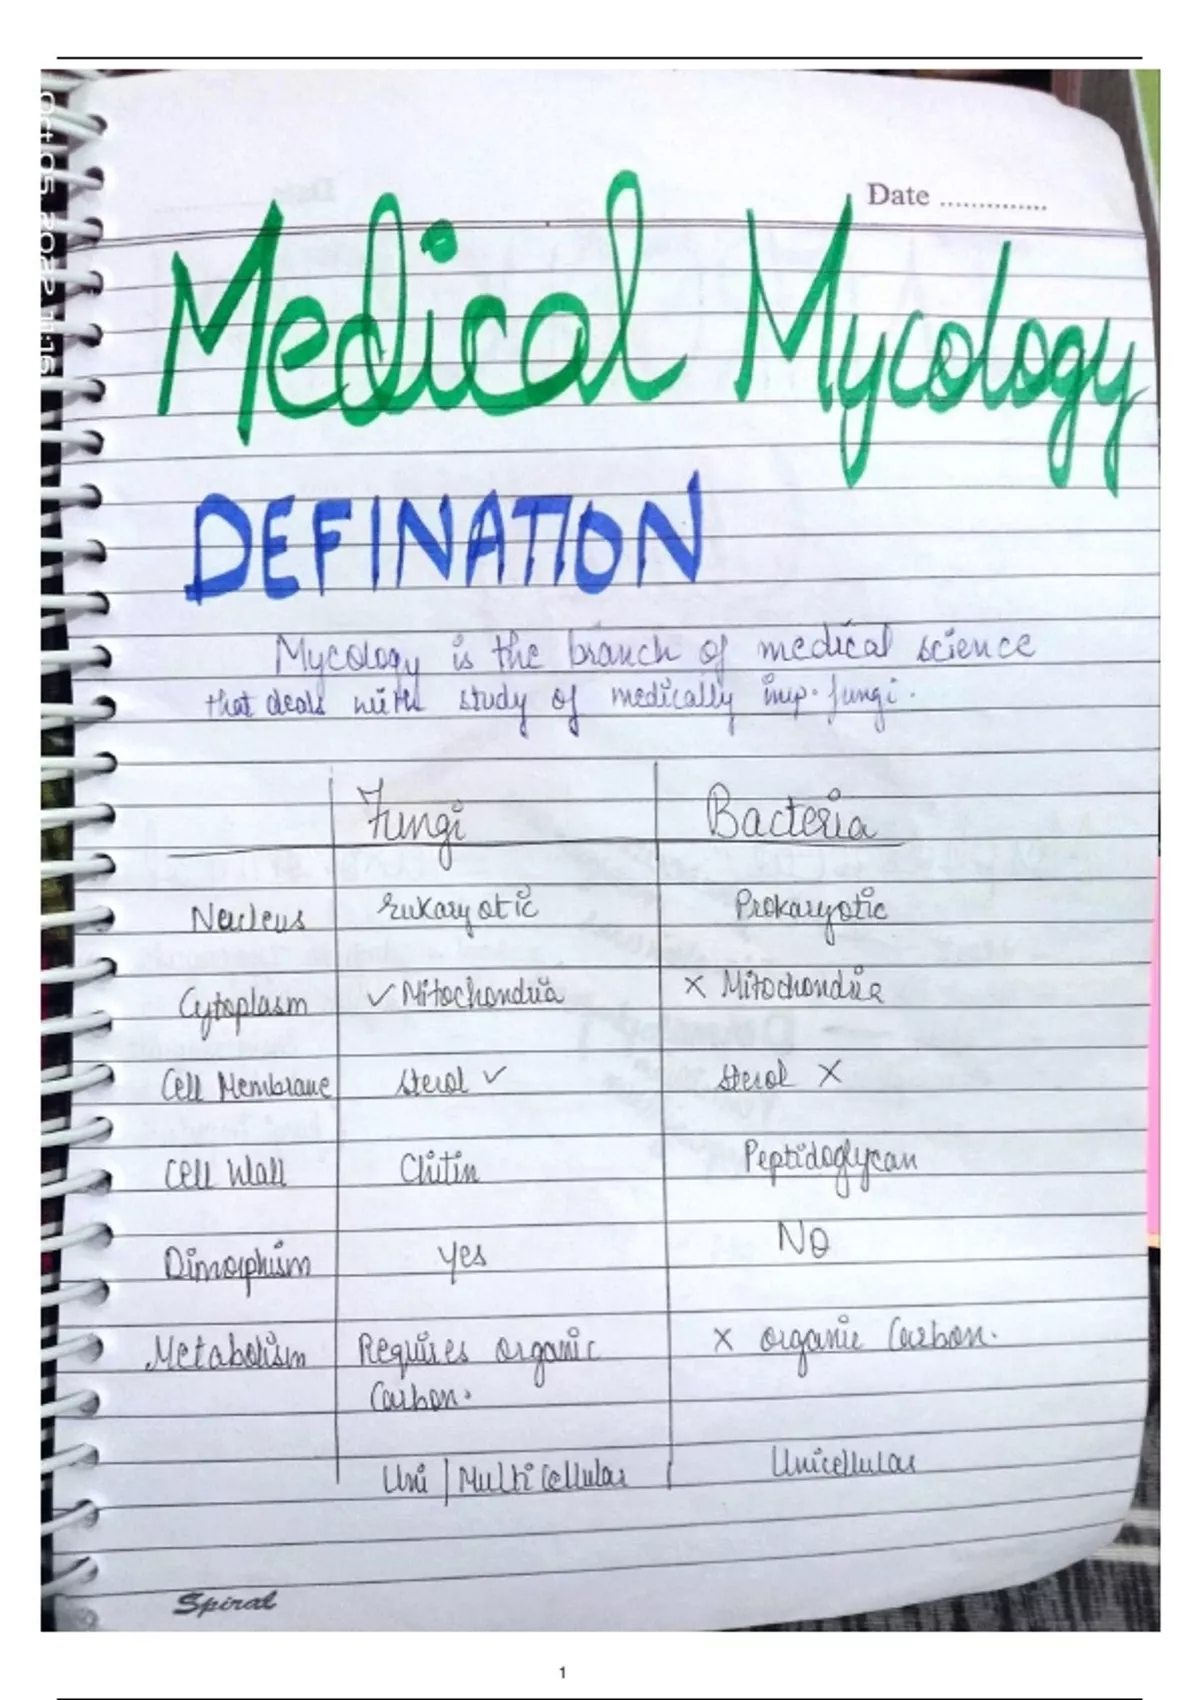 Oct 05, 2022, 11:16
Date ..............
Medical Mycology
DEFINATION
Mycology is the branch of medical science
that deals with study of medically imp. fungi.
Fungi Bacteria
Nucleus Eukaryotic Prokaryotic
Cytoplasm ✓ Mitochondria × Mitochondria
Cell Membrane Sterol ✓ Sterol ×
Cell Wall Chitin Peptidoglycan
Dimorphism Yes NO
Metabolism Requires organic × organic Carbon.
Carbon.
Uni | Multicellular Unicellular
Spiral
1